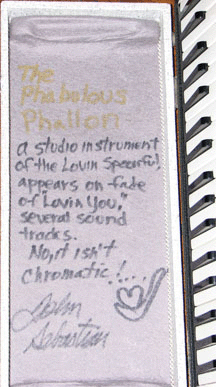 The
Phabulous
Phallon:
a studio instrument
of the Lovin Spoonful,
appears on fade
of Lovin You,"
several sound
tracks.
No, it isn't
chromatic!...
John
Sebastian